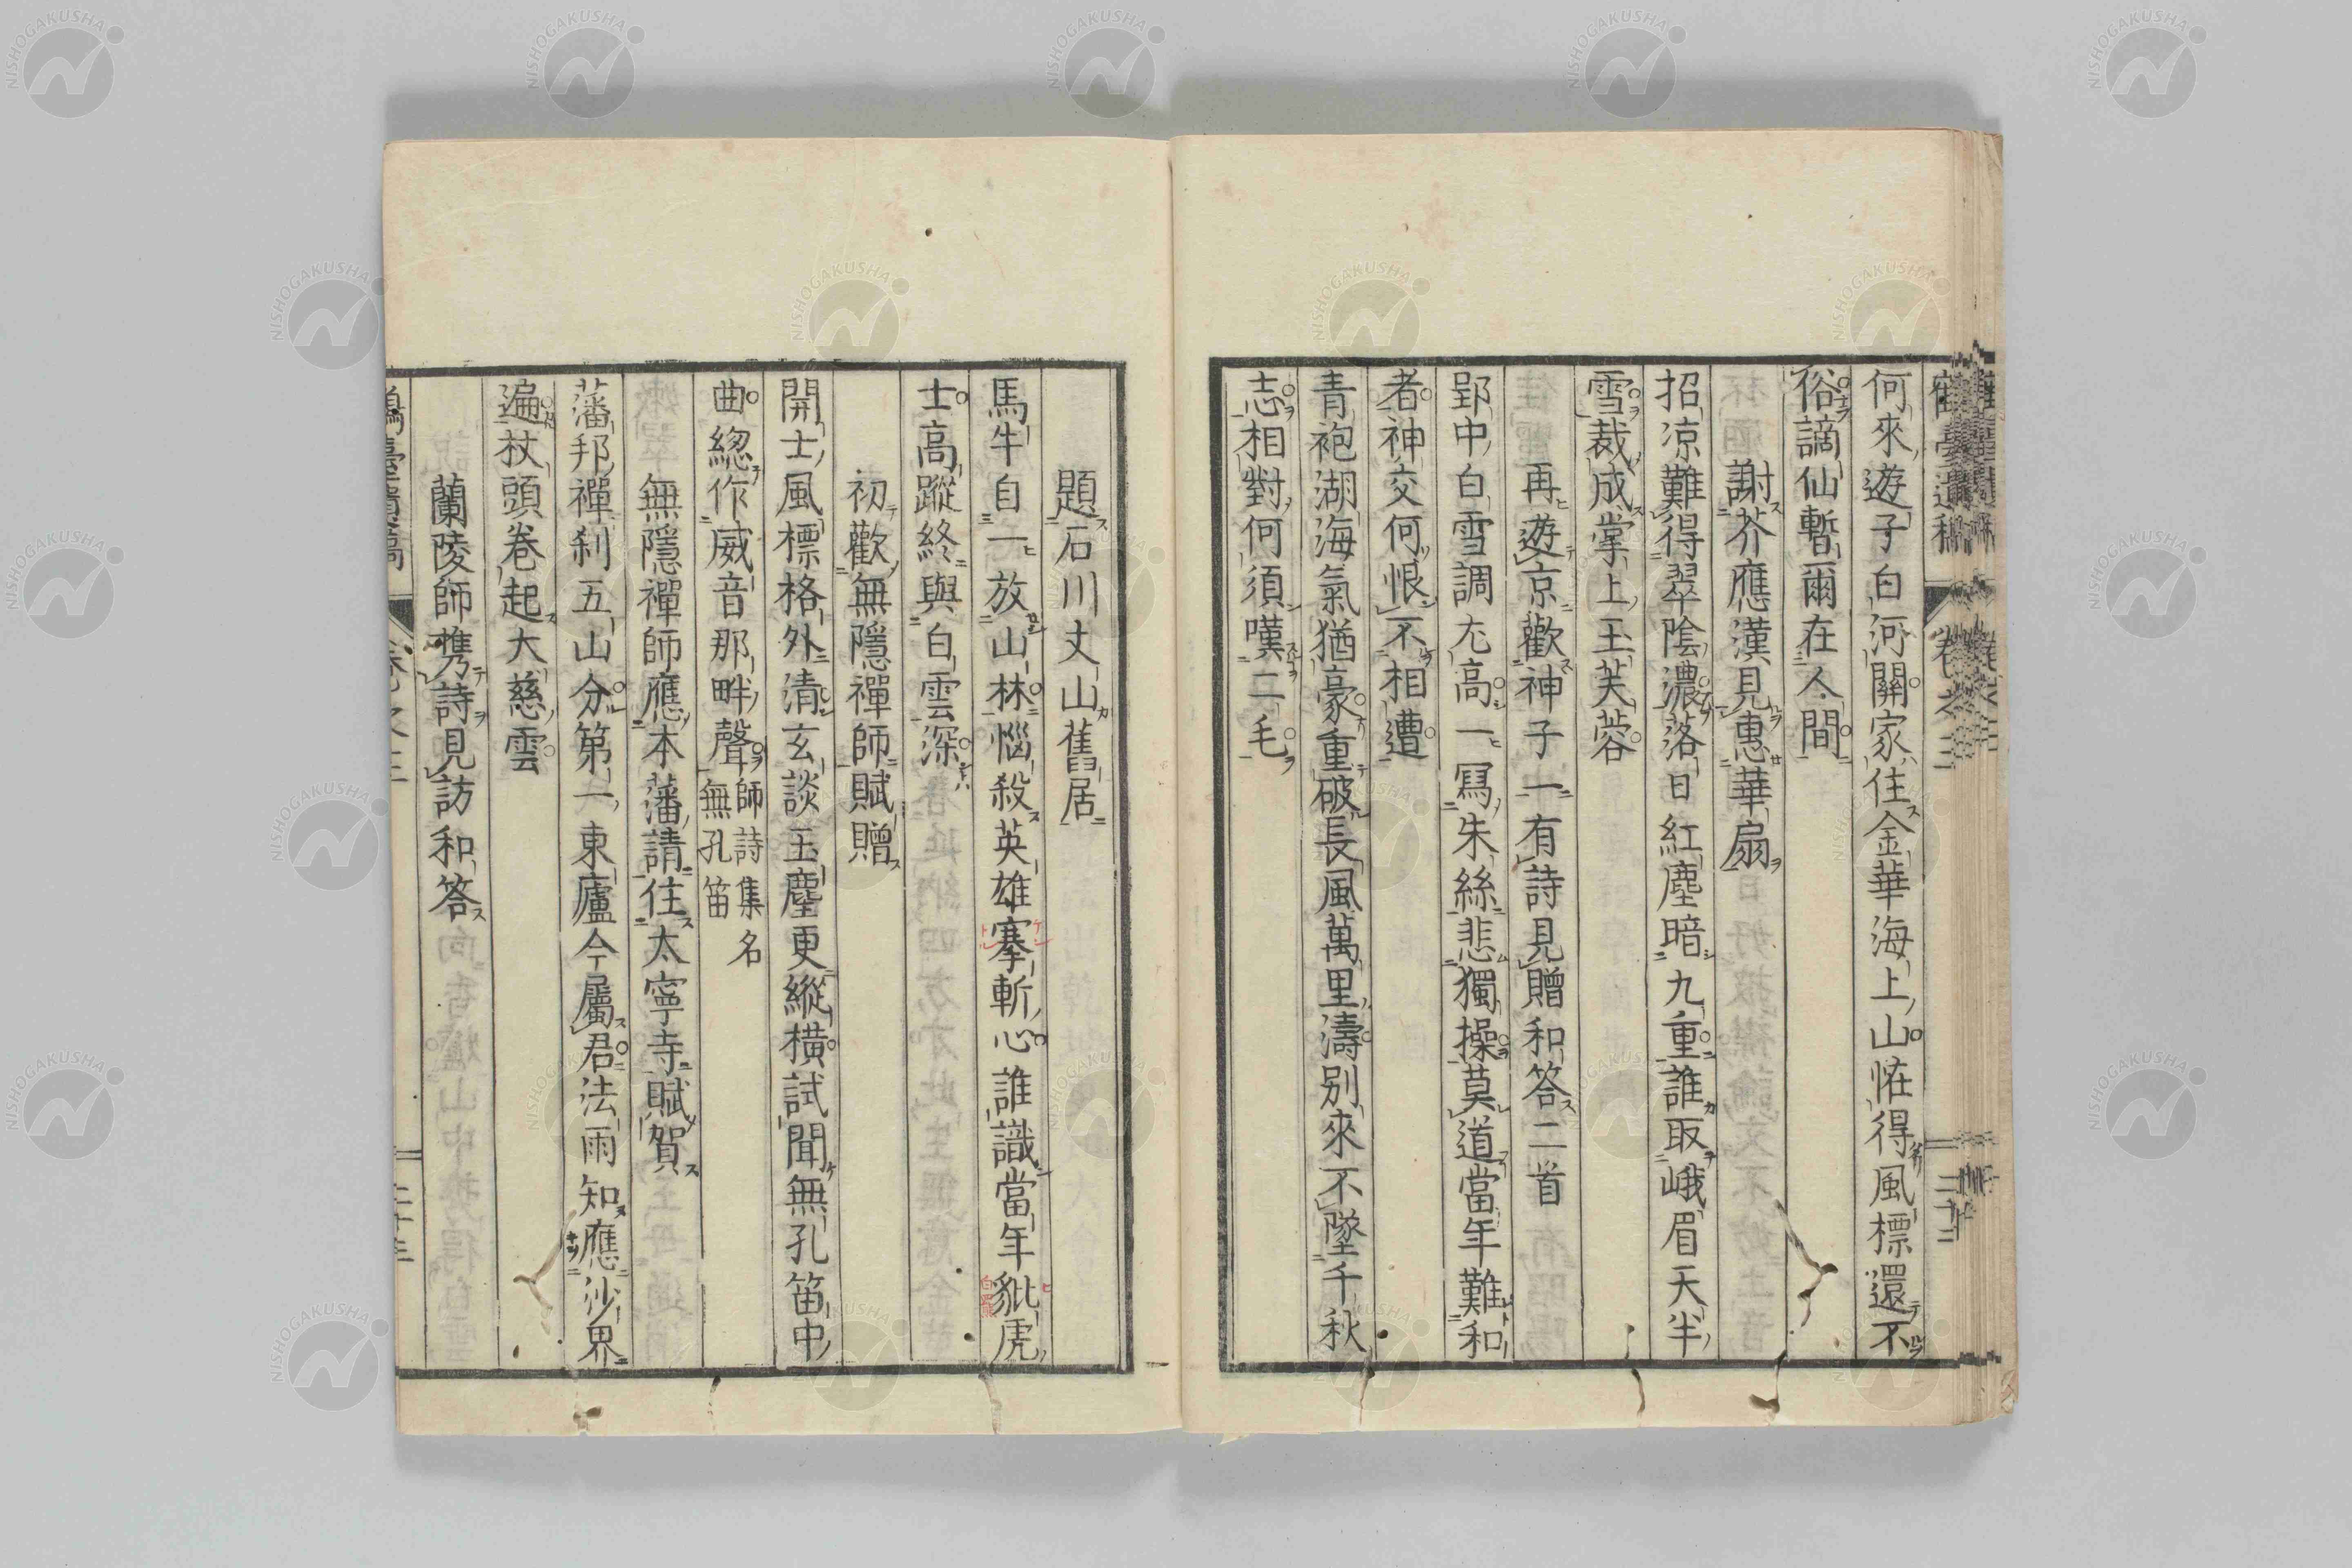 何來遊子白河關家住金華海上山恠得風標還不
俗謫仙暫爾在人間
謝芥應漢見惠華扇
招凉難得翠陰濃落日紅塵暗九重誰取峨眉天半
雪裁成掌上玉芙蓉
再遊京歡神子一有詩見贈和答二首
郢中白雪調尢高一冩朱絲悲獨操莫道當年難和
者神交何恨不相遭
青袍湖海氣猶豪重破長風萬里濤別來不墜千秋
志相對何須嘆二毛
題石川丈山舊居
馬牛自一放山林惱殺英雄搴斬心誰識當年豼虎
士高蹤終與白雲深
初歡無隱禪師賦贈
開士風標格外清玄談玉麈更縱橫試聞無孔笛中
曲緫作威音那畔聲師詩集名無孔笛
無隱禪師應本藩請住太寧寺賦賀
藩邦禪刹五山分第一東廬今屬君法雨知應沙界
遍杖頭卷起大慈雲
蘭陵師携詩見訪和答
NISHOGAKUSHA